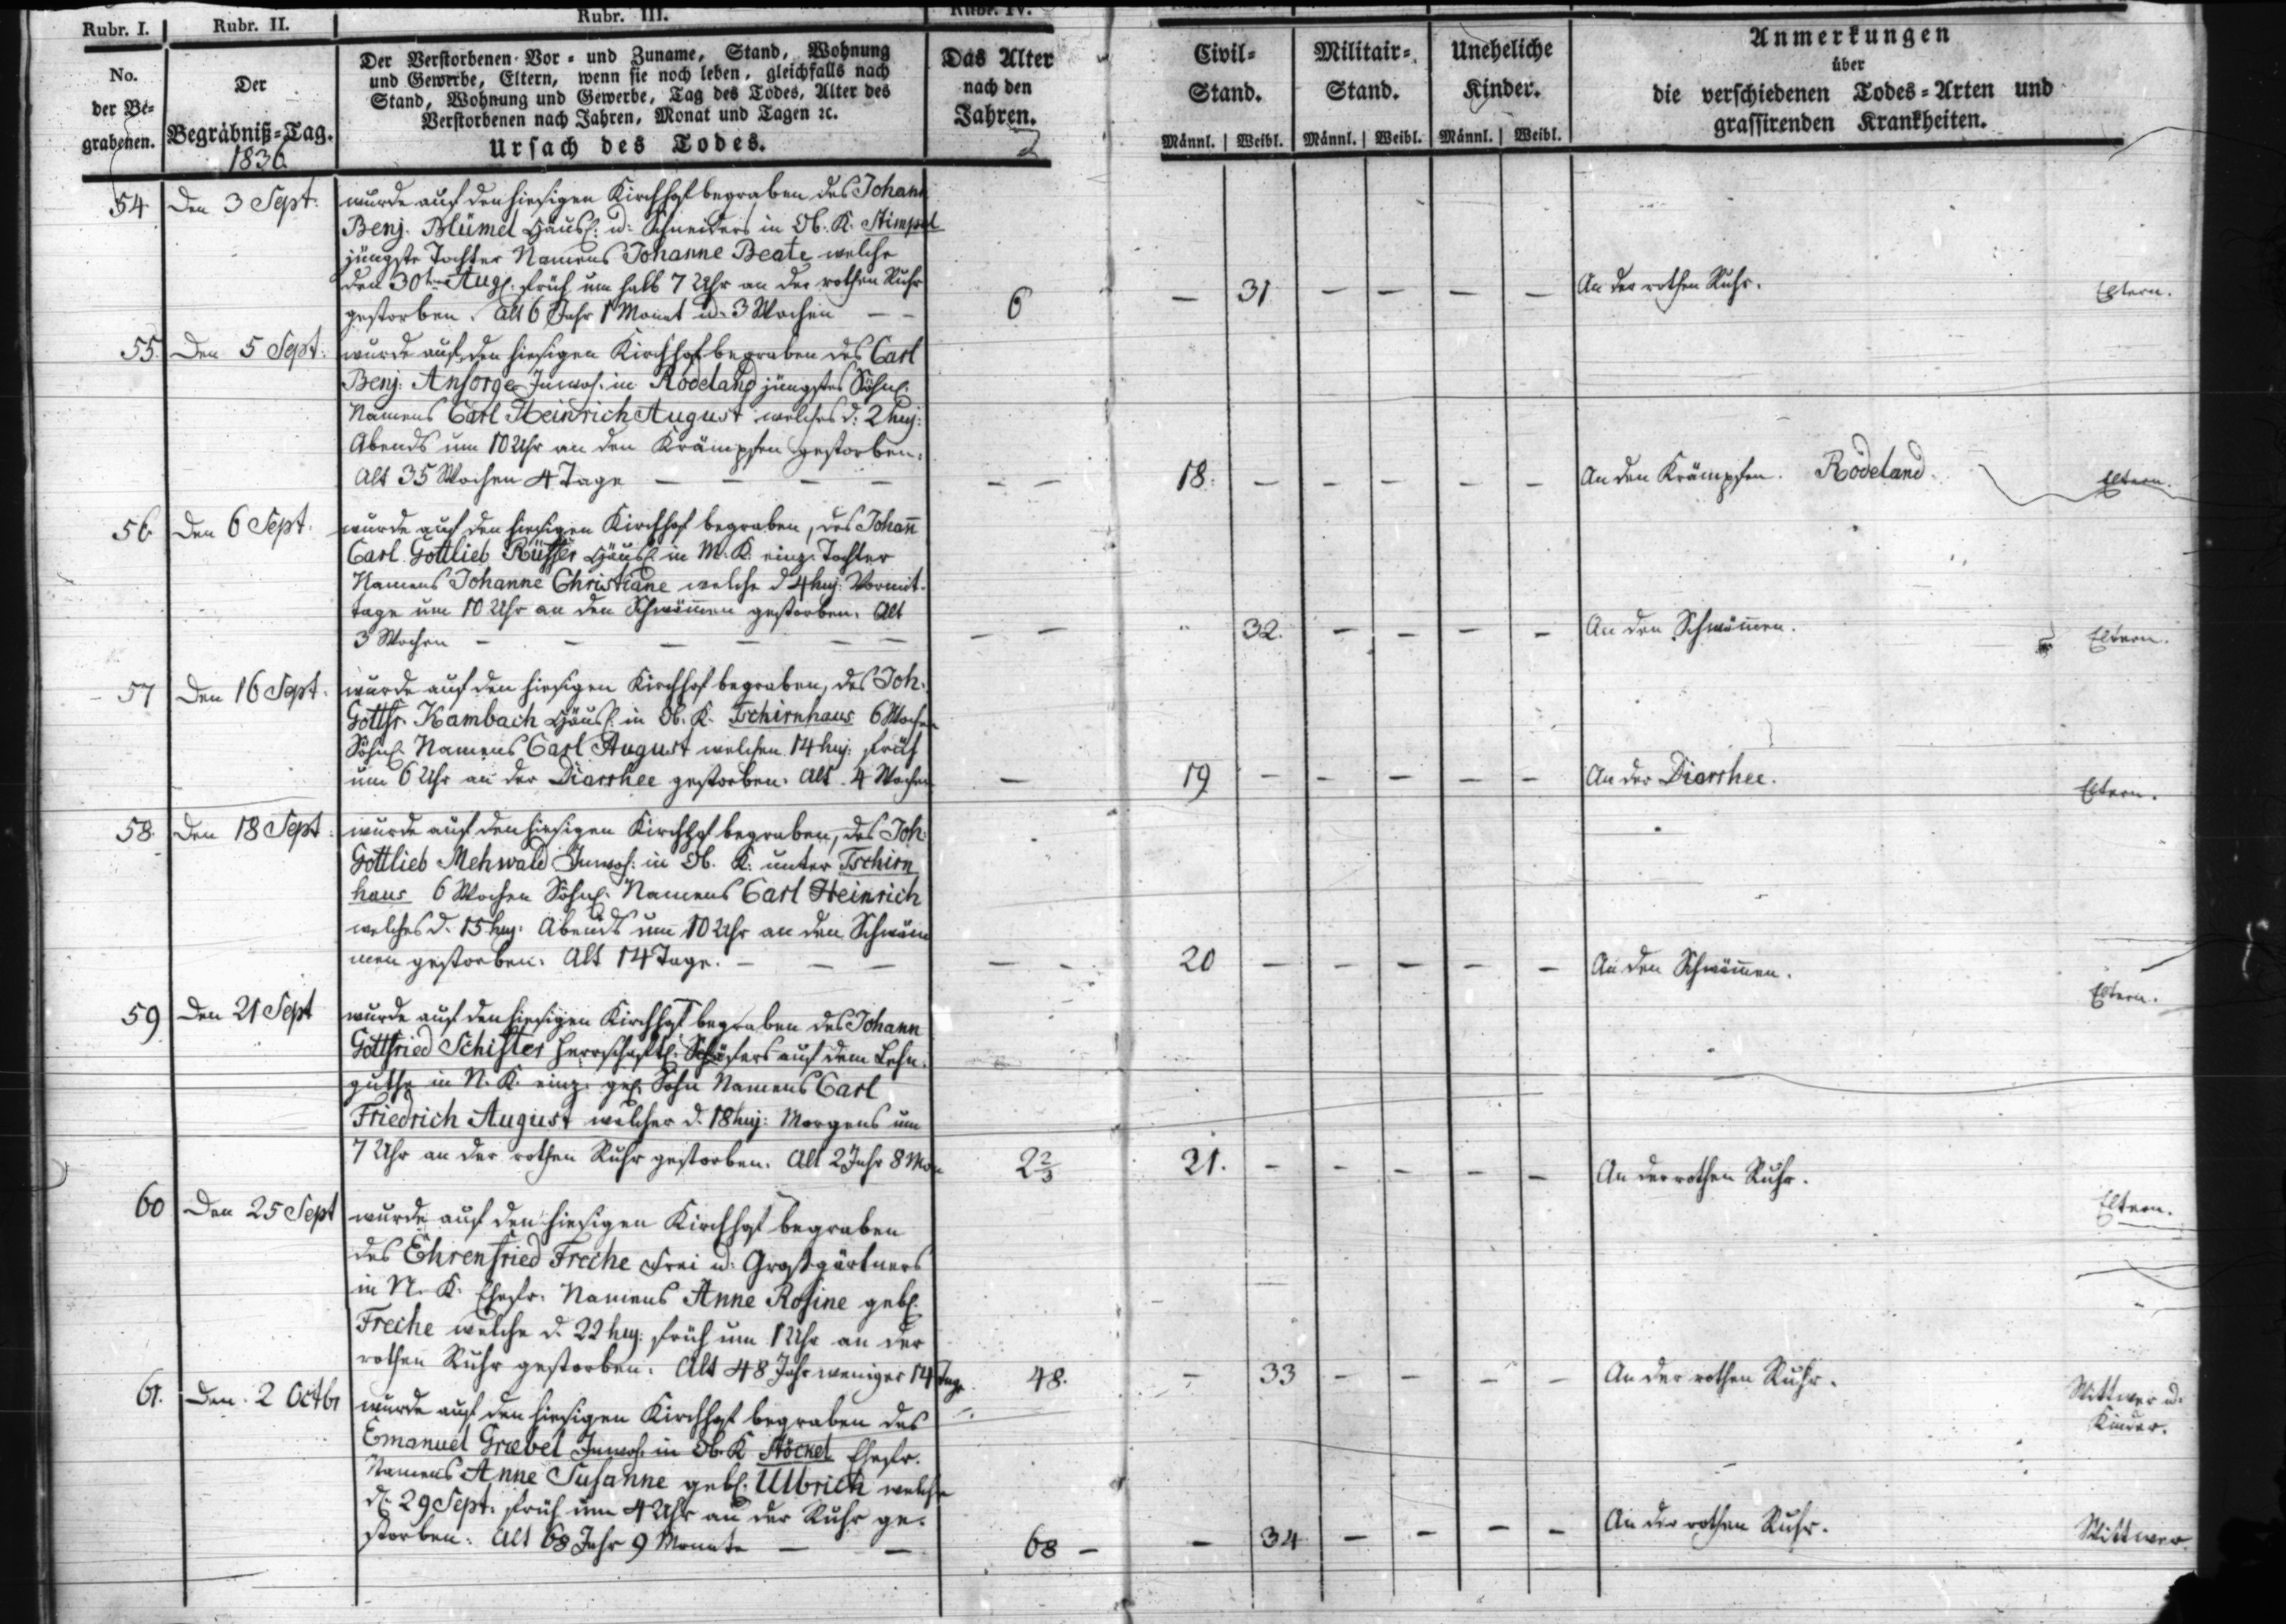 Rubr. I.
Rubr. II.
Rubr. III.
Rubr. IV.
No.
der Be-
grabenen.
Der
Begräbniß-Tag.
1836
Der Verstorbenen Vor- und Zuname, Stand, Wohnung
und Gewerbe, Eltern, wenn sie noch leben, gleichfalls nach
Stand, Wohnung und Gewerbe, Tag des Todes, Alter des
Verstorbenen nach Jahren, Monat und Tagen ꝛc.
Ursach des Todes.
Das Alter
nach den
Jahren.
Civil-
Stand.
Männl. Weibl.
Militair-
Stand.
Männl. Weibl.
Uneheliche
Kinder.
Männl. Weibl.
Anmerkungen
über
die verschiedenen Todes-Arten und
grassirenden Krankheiten.
54. Den 3 Sept: wurde auf den hiesigen Kirchhof begraben des Johann
Benj. Blümel Häusl: u: Schneiders in Ob. K. Stimpel
jüngste Tochter Namens Johanne Beate welche
den 30ten Aug: früh um halb 7 Uhr an der rothen Ruhr
gestorben. Alt 6 Jahr 1 Monat u. 3 Wochen – – 6 – 31 – – – – An der rothen Ruhr. Eltern.
55. Den 5 Sept: wurde auf den hiesigen Kirchhof begraben des Carl
Benj: Ansorge Inwoh: in Rödeland jüngstes Söhnl:
Namens Carl Heinrich August welches d: 2 huj:
Abends um 10 Uhr an den Krämpfen gestorben.
Alt 35 Wochen 4 Tage – – – – – – 18. – – – – – An den Krämpfen. Rödeland. Eltern.
56. Den 6 Sept. wurde auf den hiesigen Kirchhof begraben, des Johañ
Carl Gottlieb Rüffer Häusl: in M. K. einz: Tochter
Namens Johanne Christiane welche d 4 huj: Vormit-
tage um 10 Uhr an den Schwäm̃en gestorben. Alt
3 Wochen – – – – – – – – 32. – – – – An den Schwäm̃en. Eltern.
57 Den 16 Sept. wurde auf den hiesigen Kirchhof begraben, des Joh:
Gottfr. Kambach Häusl: in Ob. K. Tschirnhaus 6 Wochen
Söhnl: Namens Carl August welches 14 huj: früh
um 6 Uhr an der Diarrhee gestorben. Alt 4 Wochen – 19 – – – – – An der Diarrhee. Eltern.
58. Den 18 Sept: wurde auf den hiesigen Kirchhof begraben, des Joh:
Gottlieb Mehwald Inwoh: in Ob. K. unter Tschirn
haus 6 Wochen Söhnl: Namens Carl Heinrich
welches d. 15 huj: Abends um 10 Uhr an den Schwäm
men gestorben. Alt 14 Tage. – – – – – 20 – – – – – An den Schwäm̃en. Eltern.
59 Den 21 Sept wurde auf den hiesigen Kirchhof begraben des Johann
Gottfried Schifter herrschaftl: Schäfers auf dem Lehn-
guthe in N. K. einz: gel: Sohn Namens Carl
Friedrich August welcher d. 18 huj: Morgens um
7 Uhr an der rothen Ruhr gestorben. Alt 2 Jahr 8 Mon 2⅔ 21. – – – – – An der rothen Ruhr. Eltern.
60 Den 25 Sept wurde auf den hiesigen Kirchhof begraben
des Ehrenfried Freche Frei u: Großgärtners
in N. K. Ehefr. Namens Anne Rosine gebl:
Freche welche d. 22 huj: früh um 1 Uhr an der
rothen Ruhr gestorben. Alt 48 Jahr weniger 14 Tage 48. – 33 – – – – An der rothen Ruhr. Wittwer u:
Kinder.
61. Den 2 Octbr wurde auf den hiesigen Kirchhof begraben des
Emanuel Graebel Inwoh: in Ob. K Stöckel Ehefr.
Namens Anne Susanne gebl: Ulbrich welche
d. 29 Sept: früh um 4 Uhr an der Ruhr ge-
storben. Alt 68 Jahr 9 Monate – – 68 – – 34 – – – – An der rothen Ruhr. Wittwer.